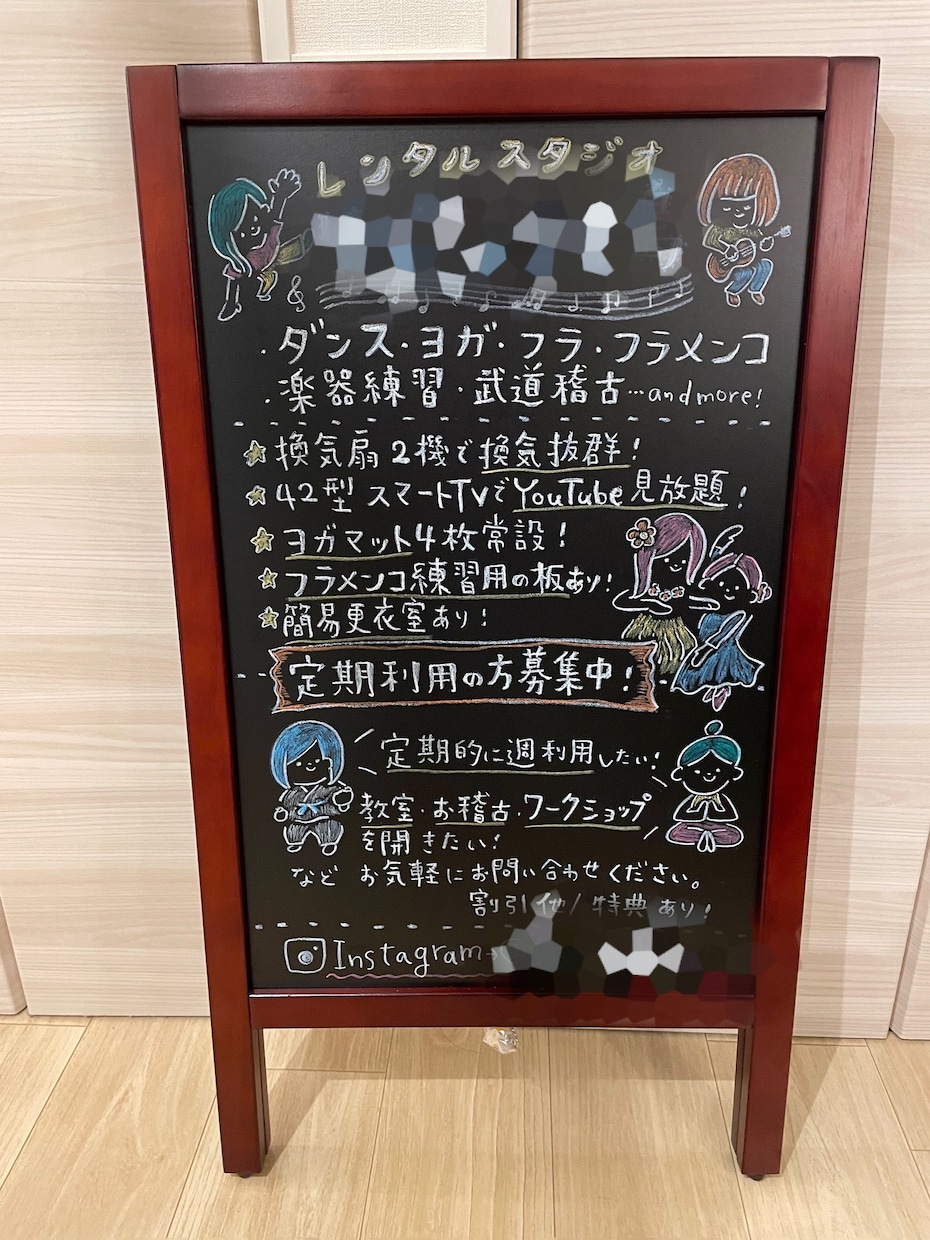 レンタルスタジオ
・ダンス・ヨガ・フラ・フラメンコ
・楽器練習・武道稽古…and more!
☆換気扇2機で換気抜群!
☆42型スマートTVでYouTube見放題!
☆ヨガマット4枚常設!
☆フラメンコ練習用の板あり!
☆簡易更衣室あり!
定期利用の方募集中!
定期的に週利用したい!
教室・お稽古・ワークショップ
を開きたい!
など お気軽にお問い合わせください。
割引他/特典あり!
Instagram